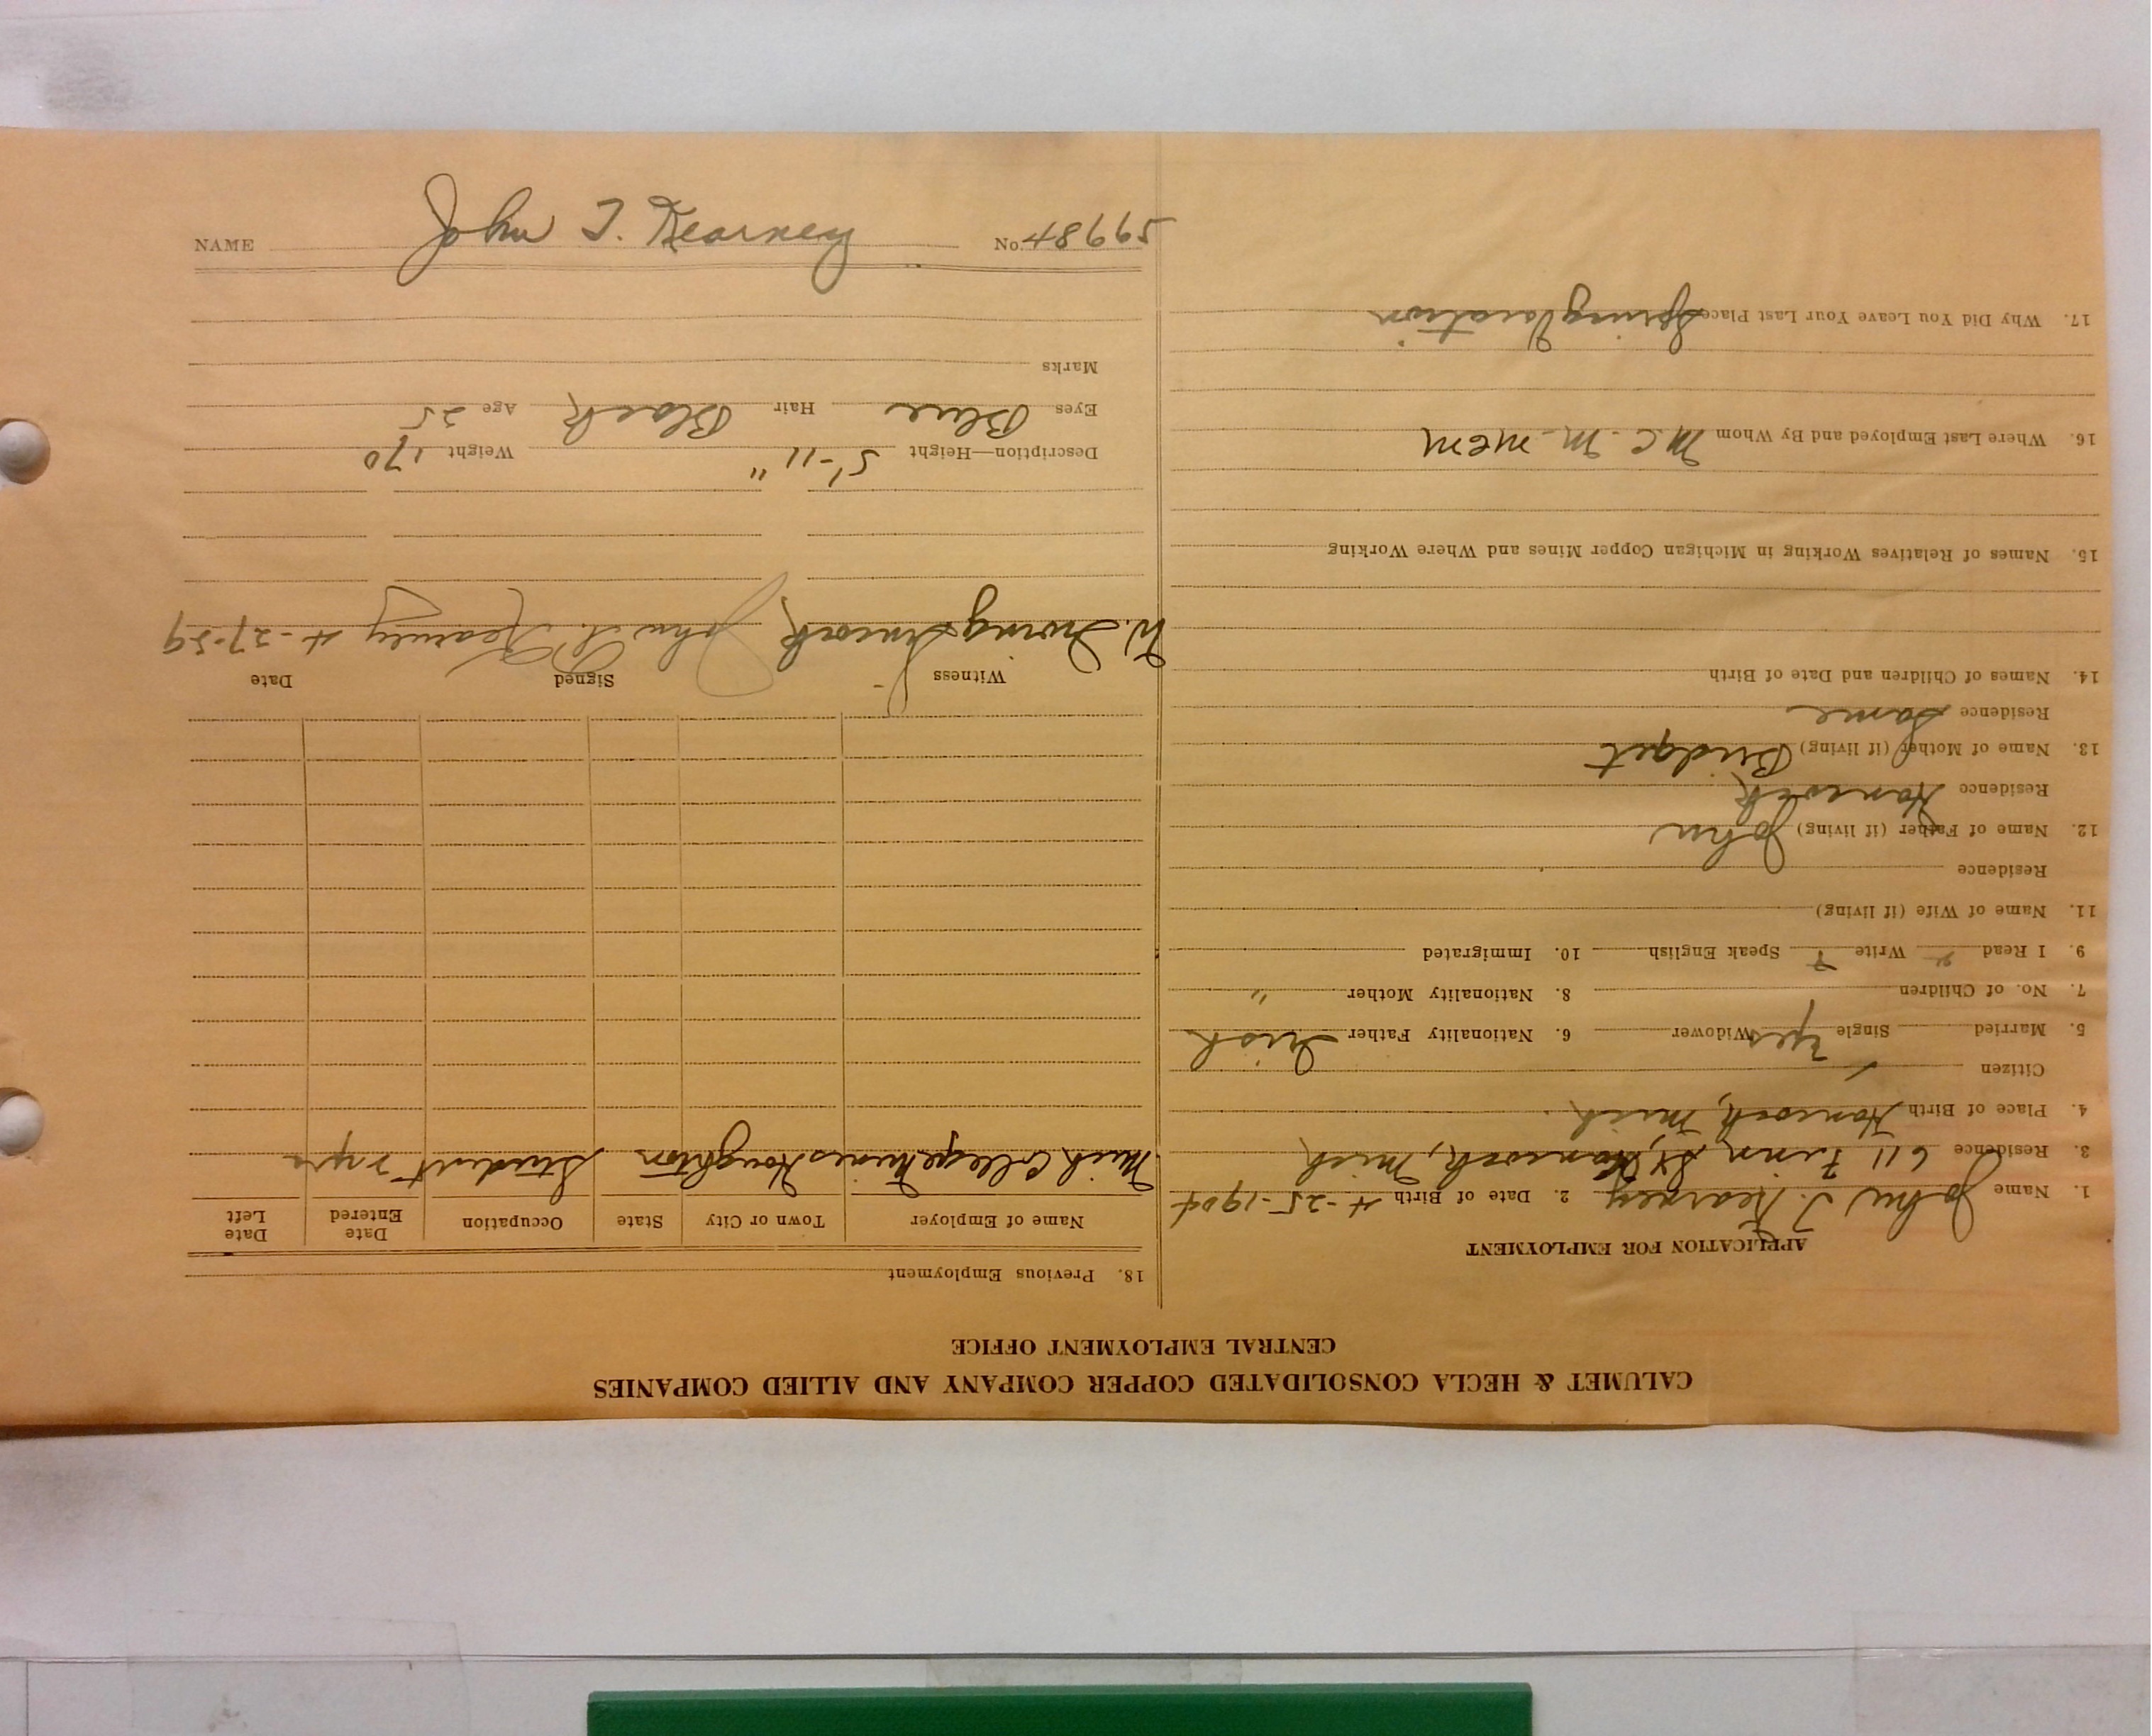 CALUMET & HECLA CONSOLIDATED COPPER COMPANY AND ALLIED COMPANIES
CENTRAL EMPLOYMENT OFFICE
APPLICATION FOR EMPLOYMENT
1. Name John T. Kearney 2. Date of Birth 4-25-1904
3. Residence 611 Finn St, Hancock, Mich
4. Place of Birth Hancock, Mich.
Citizen
5. Married Single yes Widower 6. Nationality Father Irish
7. No. of Children 8. Nationality Mother "
9. I Read Write Speak English 10. Immigrated
11. Name of Wife (if living)
Residence
12. Name of Father (if living) John
Residence Hancock
13. Name of Mother (if living) Bridget
Residence Same
14. Names of Children and Date of Birth
15. Names of Relatives Working in Michigan Copper Mines and Where Working
16. Where Last Employed and By Whom M.C.M. MCM
17. Why Did You Leave Your Last Place Spring Vacation
18. Previous Employment
Name of Employer Town or City State Occupation Date Entered Date Left
Mich College Mines Houghton Student yrs
Witness Signed Date
W. Irving John T. Kearney 4-27-29
Description—Height 5'-11" Weight 170
Eyes Blue Hair Black Age 25
Marks
NAME John T. Kearney No. 48665